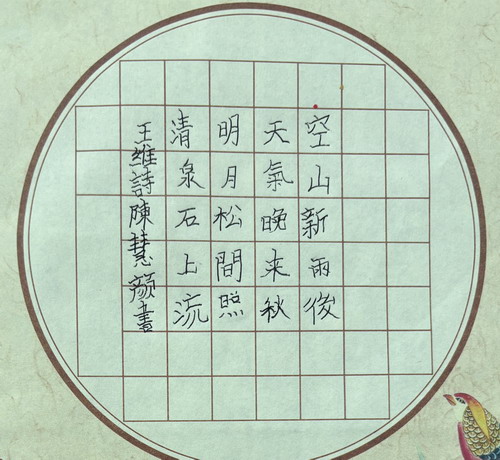 空山新雨後
天氣晚来秋
明月松間照
清泉石上流
王維詩陳慧颜書